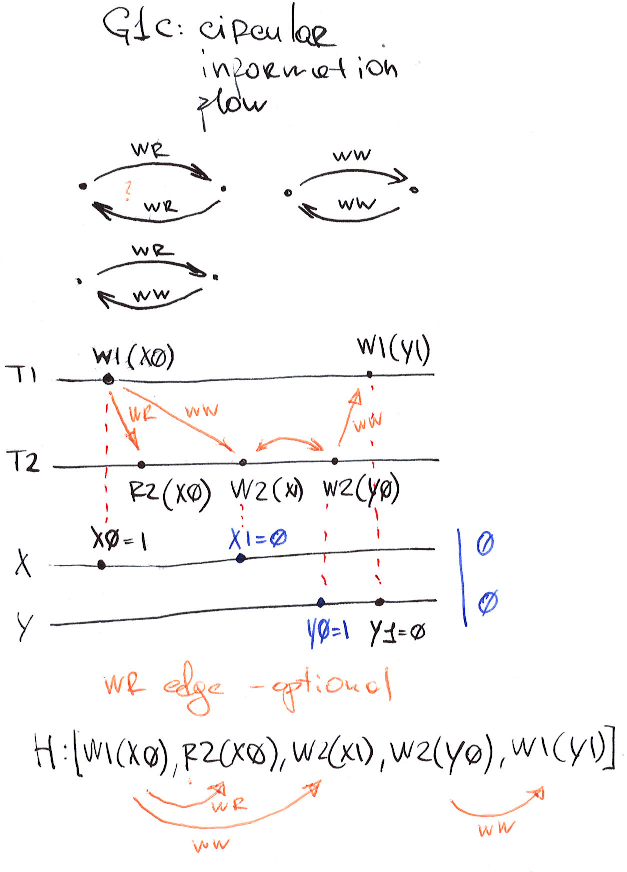 G1c: circular
information
flow
WR
?
WR
WW
WW
WR
WW
T1
W1(X0)
W1(Y1)
WR
WW
WW
T2
R2(X0)
W2(X1)
W2(Y0)
X
X0=1
X1=0
0
Y
Y0=1
Y1=0
0
WR edge - optional
H:[W1(X0), R2(X0), W2(X1), W2(Y0), W1(Y1)]
WR
WW
WW